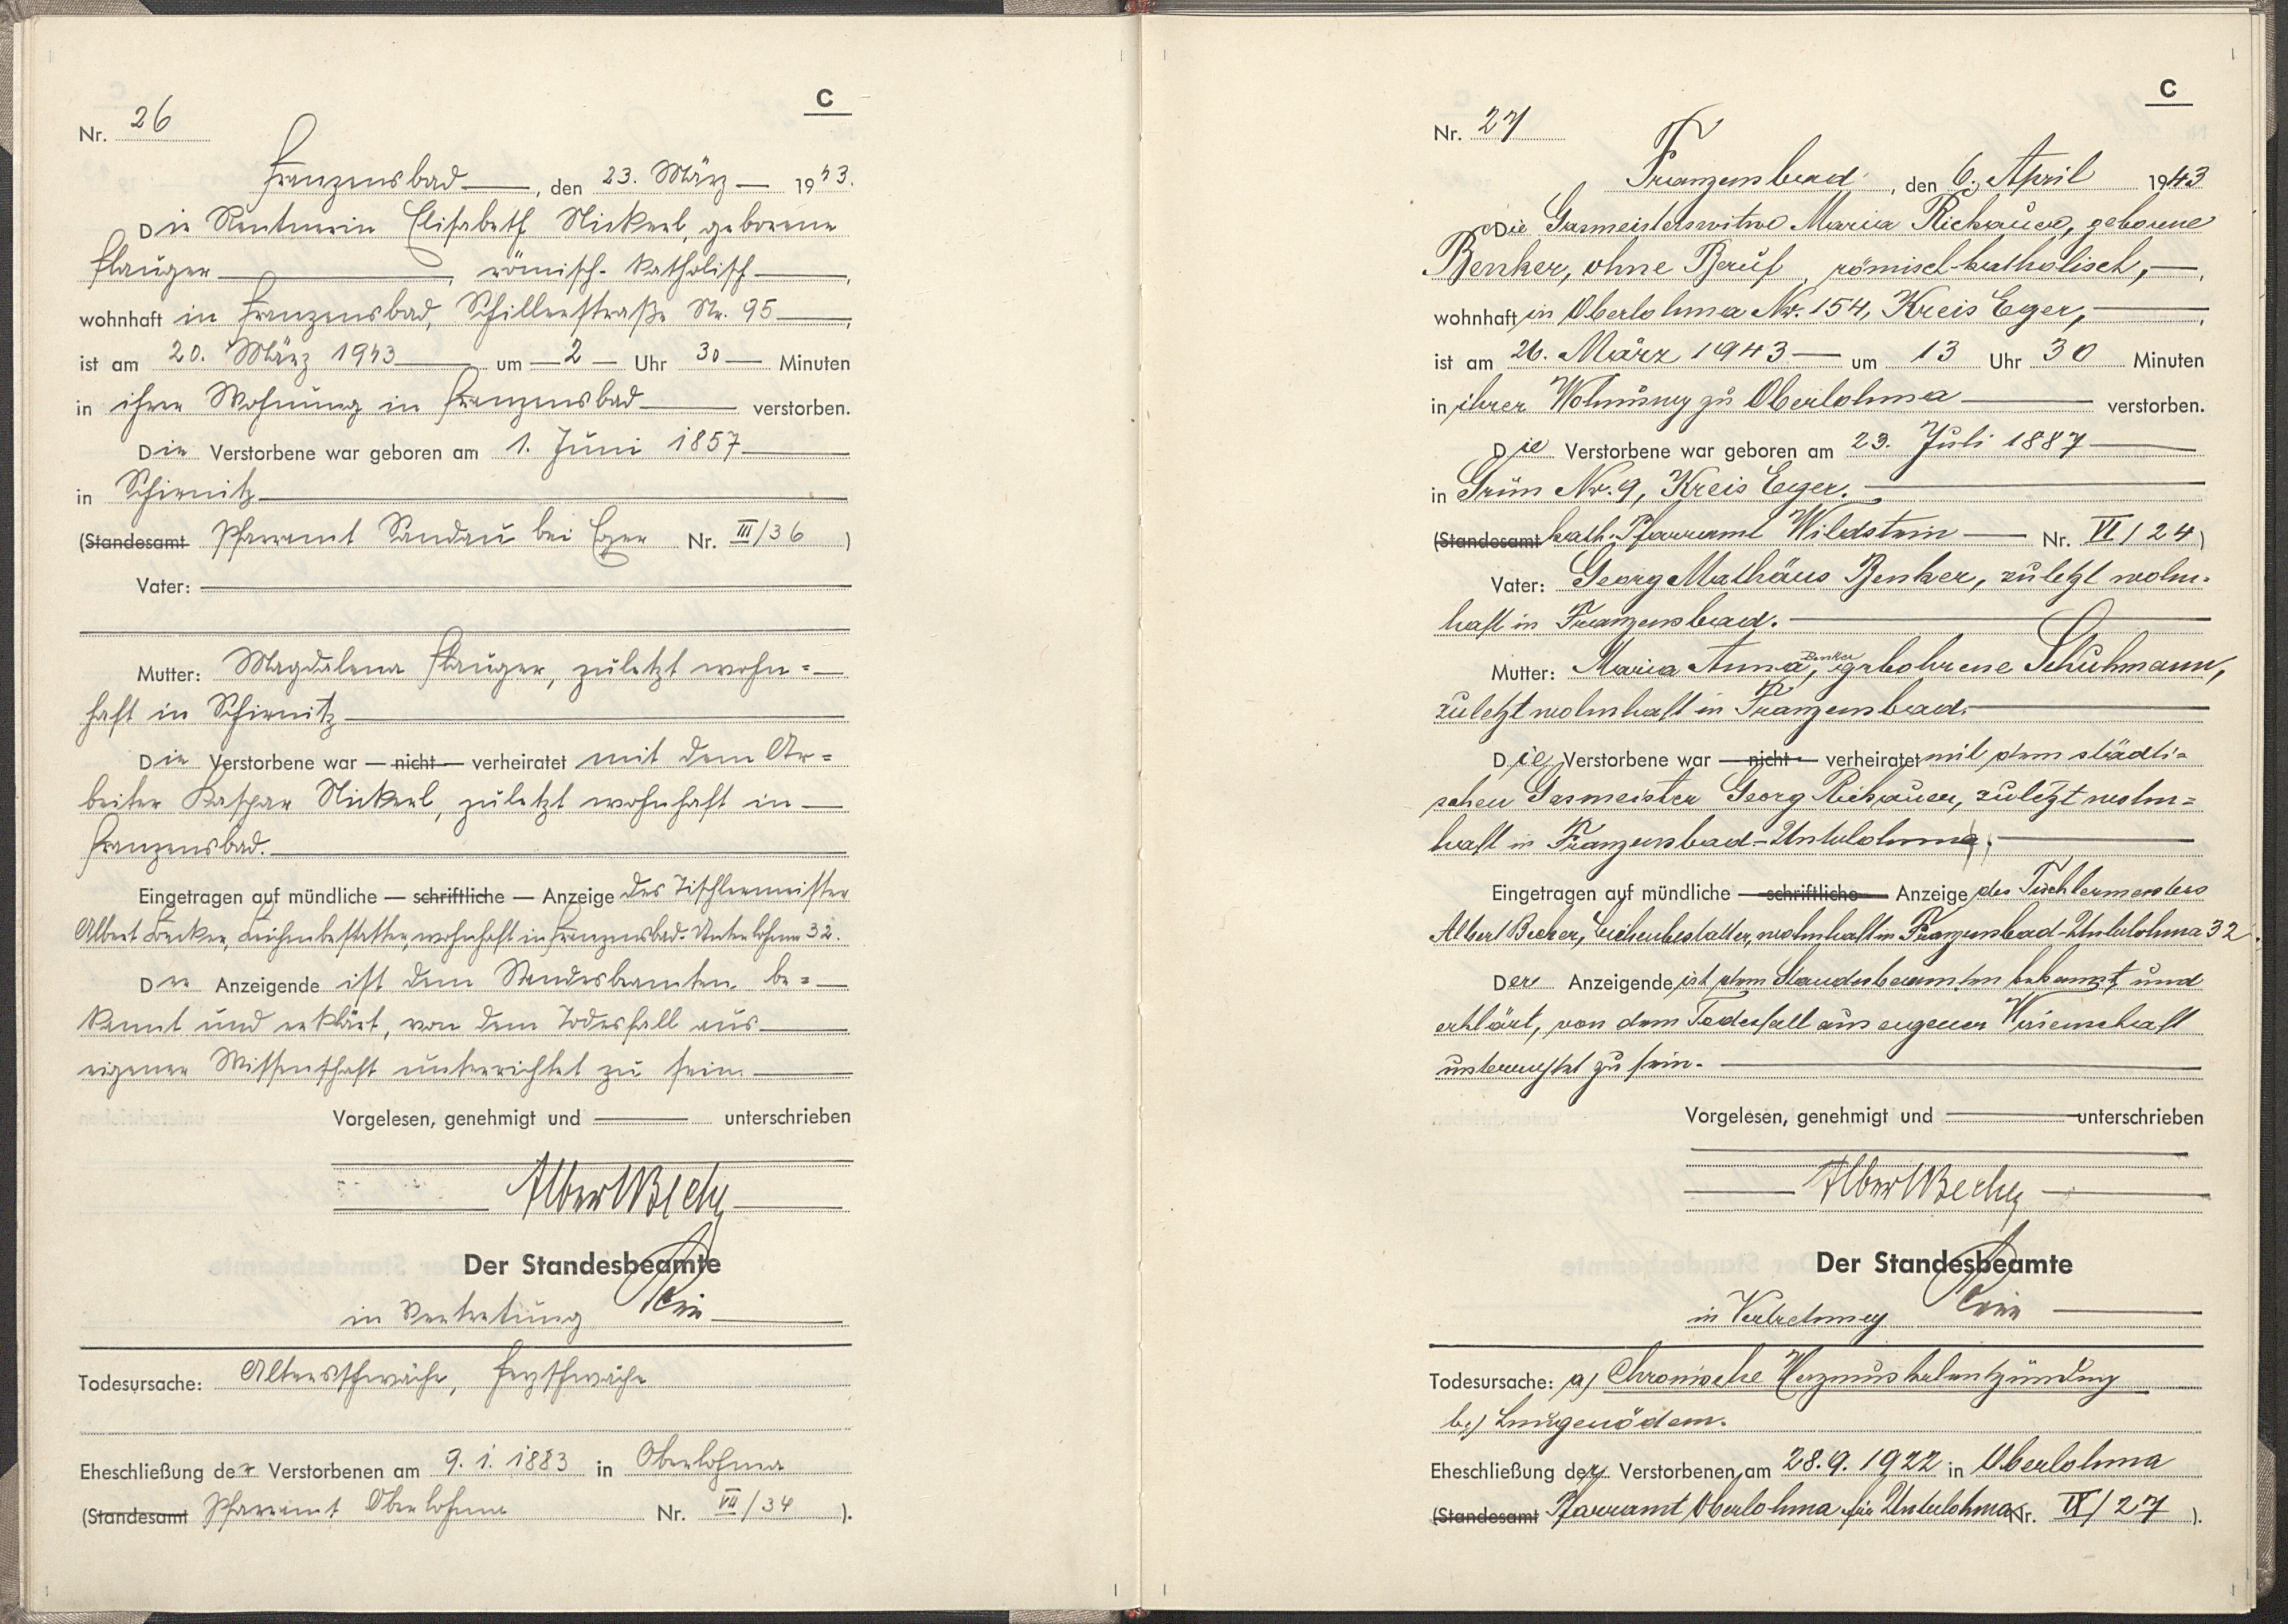 C
Nr. 26
Franzensbad, den 23. März 1943.
Die Rentnerin Elisabeth Nickerl, geborene
Flauger, römisch-katholisch,
wohnhaft in Franzensbad, Schillerstraße Nr. 95,
ist am 20. März 1943 um 2 Uhr 30 Minuten
in ihrer Wohnung in Franzensbad verstorben.
Die Verstorbene war geboren am 1. Juni 1857
in Schirnitz
(Standesamt Pfarramt Sandau bei Eger Nr. III/36)
Vater:
Mutter: Magdalena Flauger, zuletzt wohn=
haft in Schirnitz
Die Verstorbene war — nicht — verheiratet mit dem Ar=
beiter Kaspar Nickerl, zuletzt wohnhaft in
Franzensbad.
Eingetragen auf mündliche — schriftliche — Anzeige des Tischlermeister
Albert Becker, Leichenbestatter, wohnhaft in Franzensbad-Unterlohma 32.
Der Anzeigende ist dem Standesbeamten be=
kannt und erklärt, von dem Todesfall aus
eigener Wissenschaft unterrichtet zu sein.
Vorgelesen, genehmigt und unterschrieben
Albert Becher
Der Standesbeamte
in Vertretung
Todesursache: Altersschwäche, Herzschwäche
Eheschließung der Verstorbenen am 9. 1. 1883 in Oberlohma
(Standesamt Pfarramt Oberlohma Nr. VII/34).
C
Nr. 27
Franzensbad, den 6. April 1943
Die Gasmeisterswitwe Maria Richauer, geborene
Benker, ohne Beruf, römisch-katholisch,
wohnhaft in Oberlohma Nr. 154, Kreis Eger,
ist am 26. März 1943 um 13 Uhr 30 Minuten
in ihrer Wohnung zu Oberlohma verstorben.
Die Verstorbene war geboren am 23. Juli 1887
in Grün Nr. 9, Kreis Eger.
(Standesamt kath. Pfarramt Wildstein Nr. VI/24)
Vater: Georg Mathäus Benker, zuletzt wohn-
haft in Franzensbad.
Mutter: Maria Anna Benker, gebohrene Schuhmann,
zuletzt wohnhaft in Franzensbad.
Die Verstorbene war — nicht — verheiratet mit dem städti=
schen Gasmeister Georg Richauer, zuletzt wohn=
haft in Franzensbad-Unterlohma.
Eingetragen auf mündliche — schriftliche — Anzeige des Tischlermeisters
Albert Becher, Leichenbestatter, wohnhaft in Franzensbad-Unterlohma 32.
Der Anzeigende ist dem Standesbeamten bekannt und
erklärt, von dem Todesfall aus eigener Wissenschaft
unterrichtet zu sein.
Vorgelesen, genehmigt und unterschrieben
Albert Becher
Der Standesbeamte
in Vertretung
Todesursache: a) Chronische Herzmuskelentzündung
b.) Lungenödem.
Eheschließung der Verstorbenen am 28. 9. 1922 in Oberlohma
(Standesamt Pfarramt Oberlohma für Unterlohma Nr. IX/27).